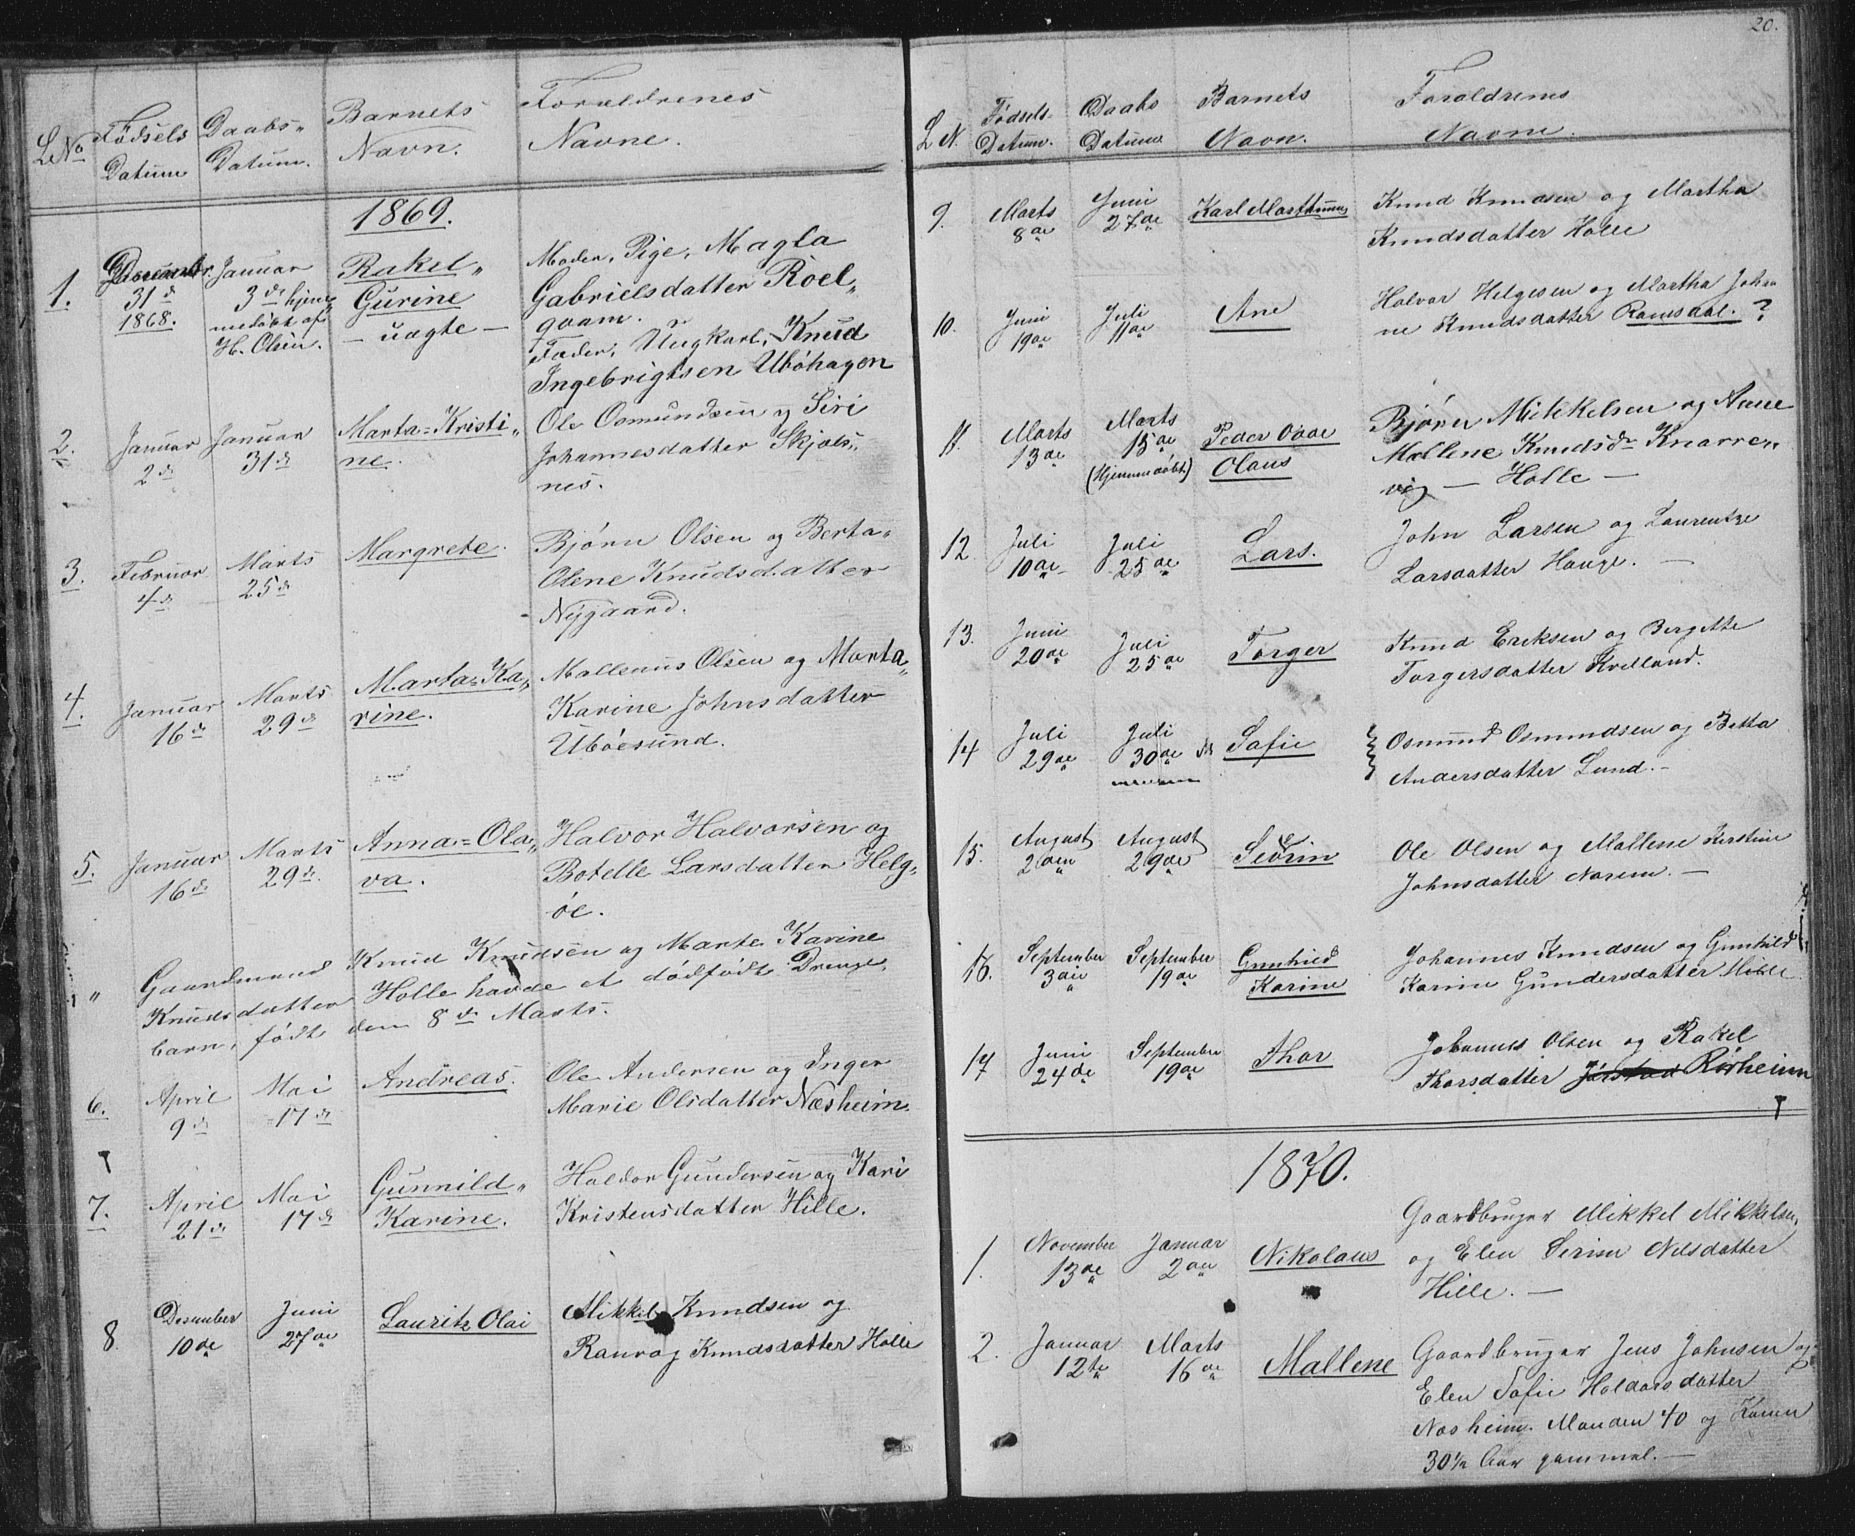 L. No
Fødsels Datum
Daabs- Datum.
Barnets Navn.
Forældrenes Navne.
1869.
1. Decembr. 31d 1868. Januar 3de hjem- medøbt af H. Olsen. Rakel- Gurine – uægte –
Moder, Pige, Magla
Gabrielsdatter Röel-
qvam.
Fader, Ungkarl, Knud
Ingebrigtsen Ubøhagen
2. Januar 2d Januar 31d Marta=Kristi- ne.
Ole Osmundsen og Siri
Johannesdatter Skjæls-
nes.
3. Februar 4d Marts 25d Margrete.
Bjørn Olsen og Berta-
Olene Knudsdatter
Nygaard.
4. Januar 16d Marts 29d Marta=Ka- rine.
Mallenus Olsen og Marta-
Karine Johnsdatter
Ubøesund.
5. Januar 16d Marts 29d Anna=Ola- va.
Halvor Halvorsen og
Botelle Larsdatter Helg-
øe.
" Gaardmand Knud Knudsen og Marte Karine
Knudsdatter Holle havde et dødfødt Drenge-
barn, født den 8de Marts.
6. April 9d Mai 17d Andreas.
Ole Andersen og Inger
Marie Olsdatter Næsheim.
7. April 21d Mai 17d Gunnild- Karine.
Haldor Gundersen og Kari
Kristensdatter Hille.
8. Desember 10de Juni 27de Lauritz Olai
Mikkel Knudsen og
Ranvög Knudsdatter Holle
20.
L N.
Fødsels- Datum.
Daabs Datum
Barnets Navn.
Forældrenes Navne.
9. Marts 8de Juni 27de Karl Marthinus
Knud Knudsen og Martha
Knudsdatter Holle
10. Juni 19de Juli 11de Ane
Halvor Helgesen og Martha Joha
ne Knudsdatter Ramsdal. ?
11. Marts 13de Marts 15de (Hjemmedøbt) Peder Odde Olaus
Bjørn Mikkelsen og Anne
Mallene Knudsdr Knarre-
vig – Holle –
12. Juli 10de Juli 25de Lars.
John Larsen og Laurentze
Larsdatter Hauge. –
13. Juni 20de Juli 25de Torger
Knud Eriksen og Bergitte
Torgersdatter Kvelland.
14. Juli 29de Juli 30de Sofie
Osmund Osmundsen og Betta
Andersdatter Lund. –
15. August 2den August 29de Sevrin
Ole Olsen og Mallene Kirstine
Johnsdatter Narem. –
16. September 3die September 19de Gunhild Karine
Johannes Knudsen og Gunhild
Karine Gundersdatter Hille
17. Juni 24de September 19de Thor
Johannes Olsen og Rakel
Thorsdatter Jørstad Rørheim
1870.
1. November 13de Januar 2den Nikolaus
Gaardbruger Mikkel Mikkelsen,
og Elen Serine Nilsdatter
Hille. –
2. Januar 12te Marts 16de Mallene
Gaardbruger Jens Johnsen og
Elen Sofie Haldorsdatter
Næsheim. Manden 40 og Konen
30½ Aar gammel. –